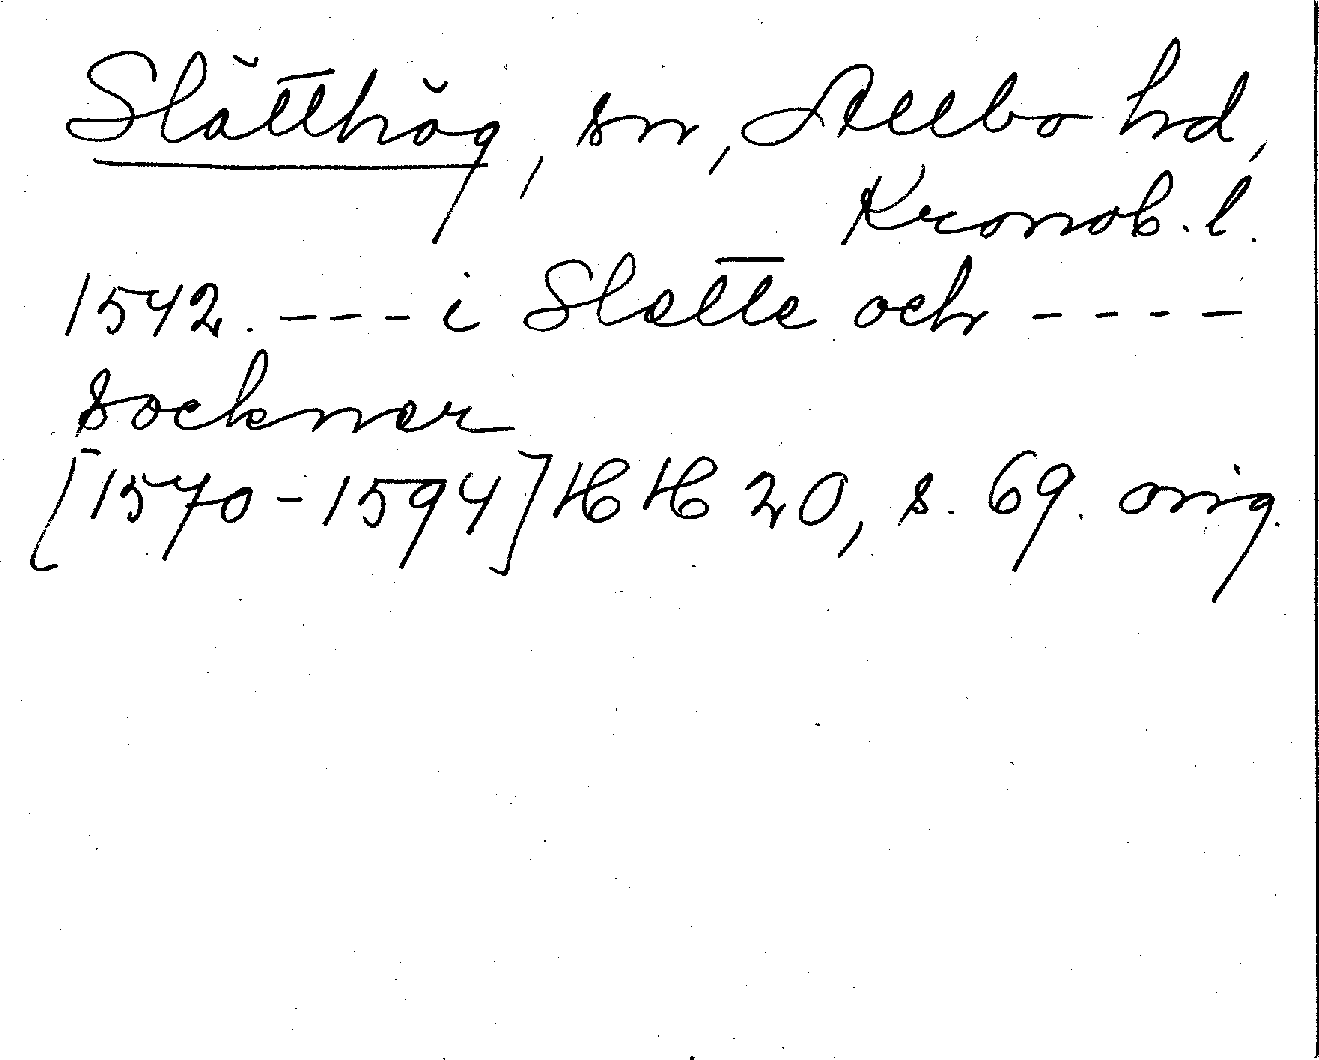 Slätthög, sn, Allbo hd,
Kronob. l.
1542. --- i Slette och ----
sockner
[1570-1594] HH 20, s. 69. orig.